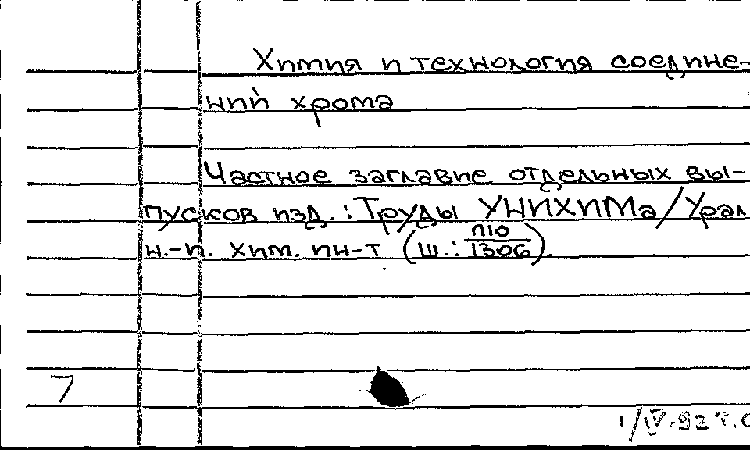 Химия и технология соедине-
ний хрома
Частное заглавие отдельных вы-
пусков изд.: Труды УНИХИМа/Урал
н.-и. хим. ин-т (Ш.: П10/1306).
7
1/IV-92 г.